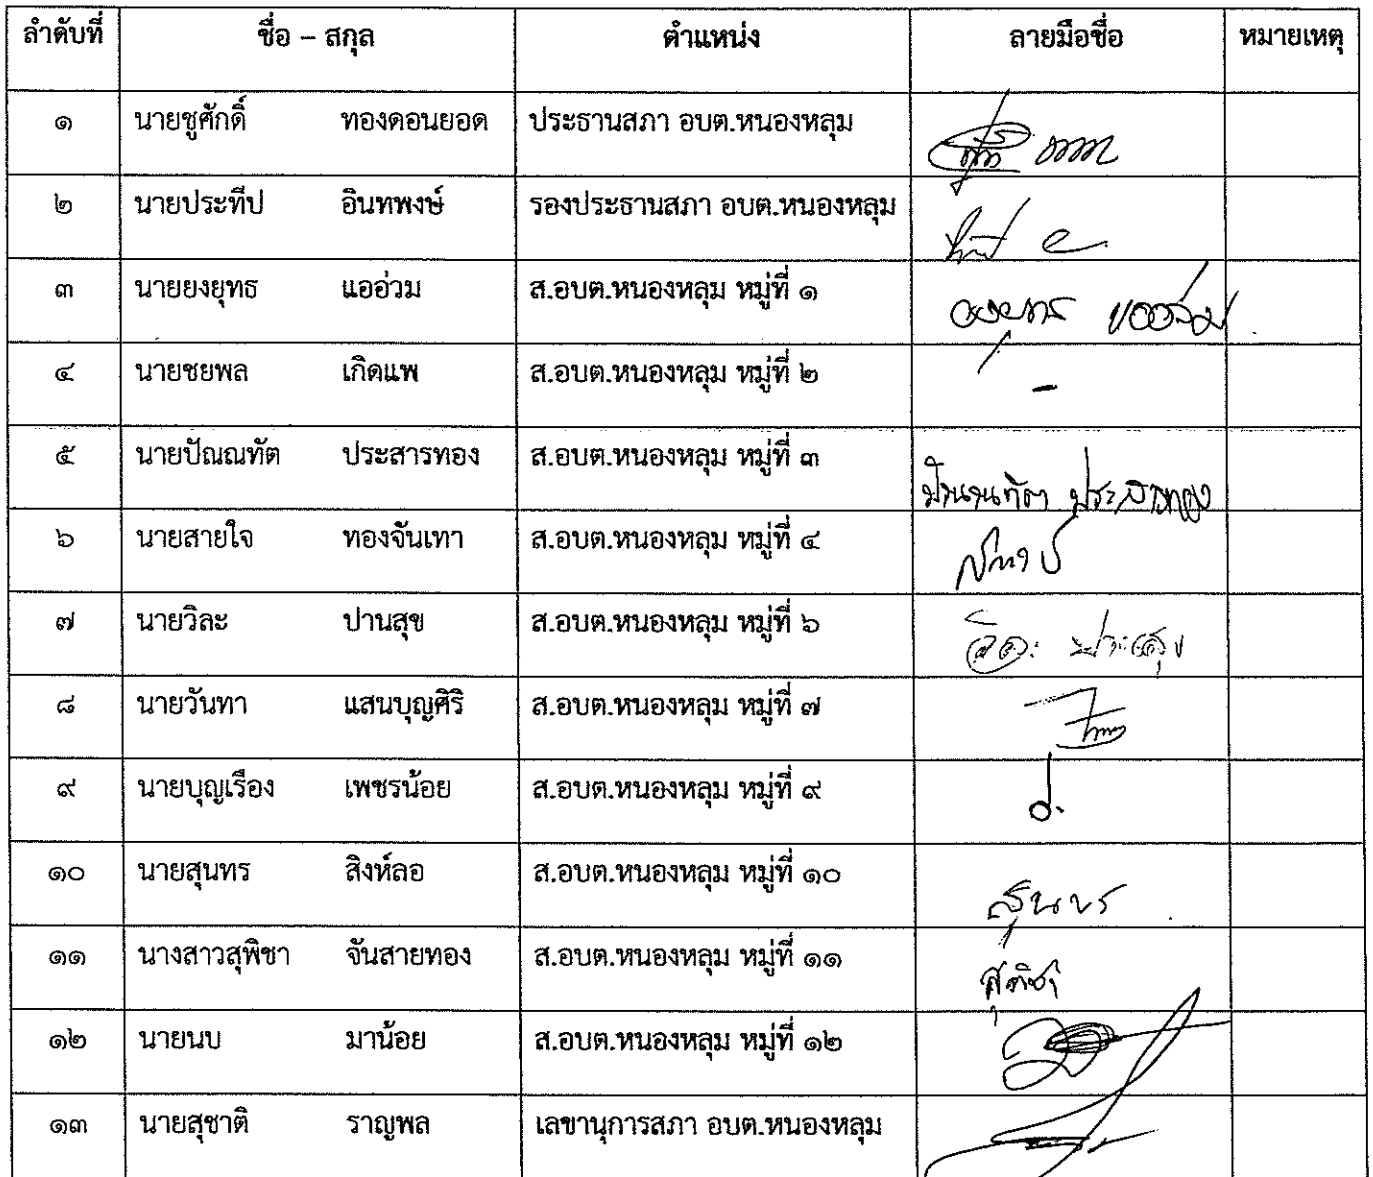 ลำดับที่ ชื่อ – สกุล ตำแหน่ง ลายมือชื่อ หมายเหตุ
๑ นายชูศักดิ์ ทองดอนยอด ประธานสภา อบต.หนองหลุม
๒ นายประทีป อินทพงษ์ รองประธานสภา อบต.หนองหลุม
๓ นายยงยุทธ แออ่วม ส.อบต.หนองหลุม หมู่ที่ ๑
๔ นายชยพล เกิดแพ ส.อบต.หนองหลุม หมู่ที่ ๒ -
๕ นายปัณณทัต ประสารทอง ส.อบต.หนองหลุม หมู่ที่ ๓ ปัณณทัต ประสารทอง
๖ นายสายใจ ทองจันเทา ส.อบต.หนองหลุม หมู่ที่ ๔
๗ นายวิละ ปานสุข ส.อบต.หนองหลุม หมู่ที่ ๖
๘ นายวันทา แสนบุญศิริ ส.อบต.หนองหลุม หมู่ที่ ๗
๙ นายบุญเรือง เพชรน้อย ส.อบต.หนองหลุม หมู่ที่ ๙
๑๐ นายสุนทร สิงห์ลอ ส.อบต.หนองหลุม หมู่ที่ ๑๐ สุนทร
๑๑ นางสาวสุพิชา จันสายทอง ส.อบต.หนองหลุม หมู่ที่ ๑๑ สุพิชา
๑๒ นายนบ มาน้อย ส.อบต.หนองหลุม หมู่ที่ ๑๒
๑๓ นายสุชาติ ราญพล เลขานุการสภา อบต.หนองหลุม